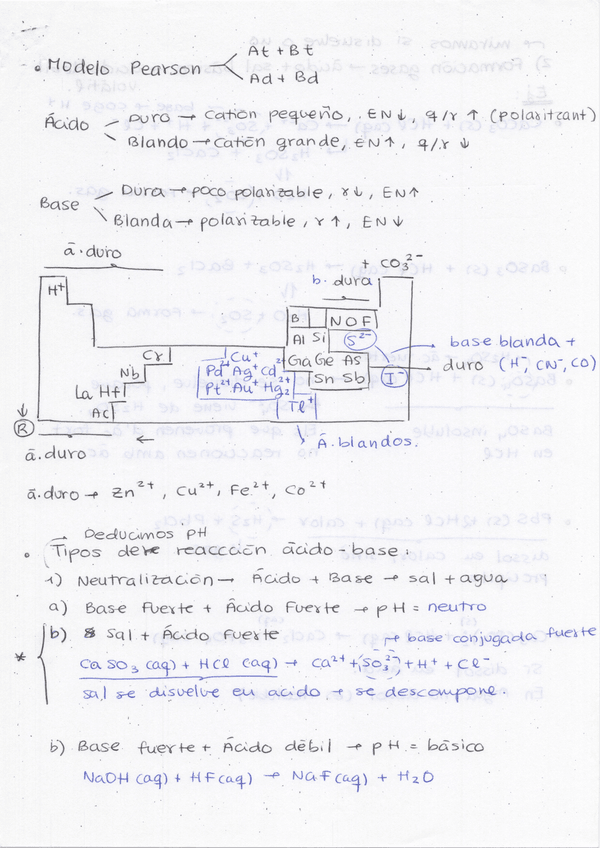 • Modelo Pearson
At + Bt
Ad + Bd
Ácido
Duro → Catión pequeño, EN↓, q/r ↑ (polarizant)
Blando → Catión grande, EN↑, q/r ↓
Base
Dura → poco polarizable, r↓, EN↑
Blanda → polarizable, r↑, EN↓
ā.duro
+ CO₃²⁻
b. dura
H⁺
B N O F
Al Si S²⁻
base blanda +
Cr Cu⁺ Ga Ge As
duro (H⁻, CN⁻, CO)
Nb Pd²⁺ Ag⁺ Cd²⁺ Sn Sb I⁻
La Hf Pt²⁺ Au⁺ Hg₂²⁺ Tl⁺
Ac
R
Á. blandos.
ā.duro
ā.duro → Zn²⁺, Cu²⁺, Fe²⁺, Co²⁺
→ Deducimos pH
• Tipos de reaccción ácido-base:
1) Neutralización → Ácido + Base → sal + agua
a) Base Fuerte + Ácido Fuerte → pH = neutro
* b) Sal + Ácido Fuerte
→ base conjugada fuerte
CaSO₃ (aq) + HCl (aq) → Ca²⁺ + SO₃²⁻ + H⁺ + Cl⁻
sal se disuelve en acido → se descompone
b) Base fuerte + Ácido débil → pH = básico
NaOH (aq) + HF (aq) → NaF (aq) + H₂O